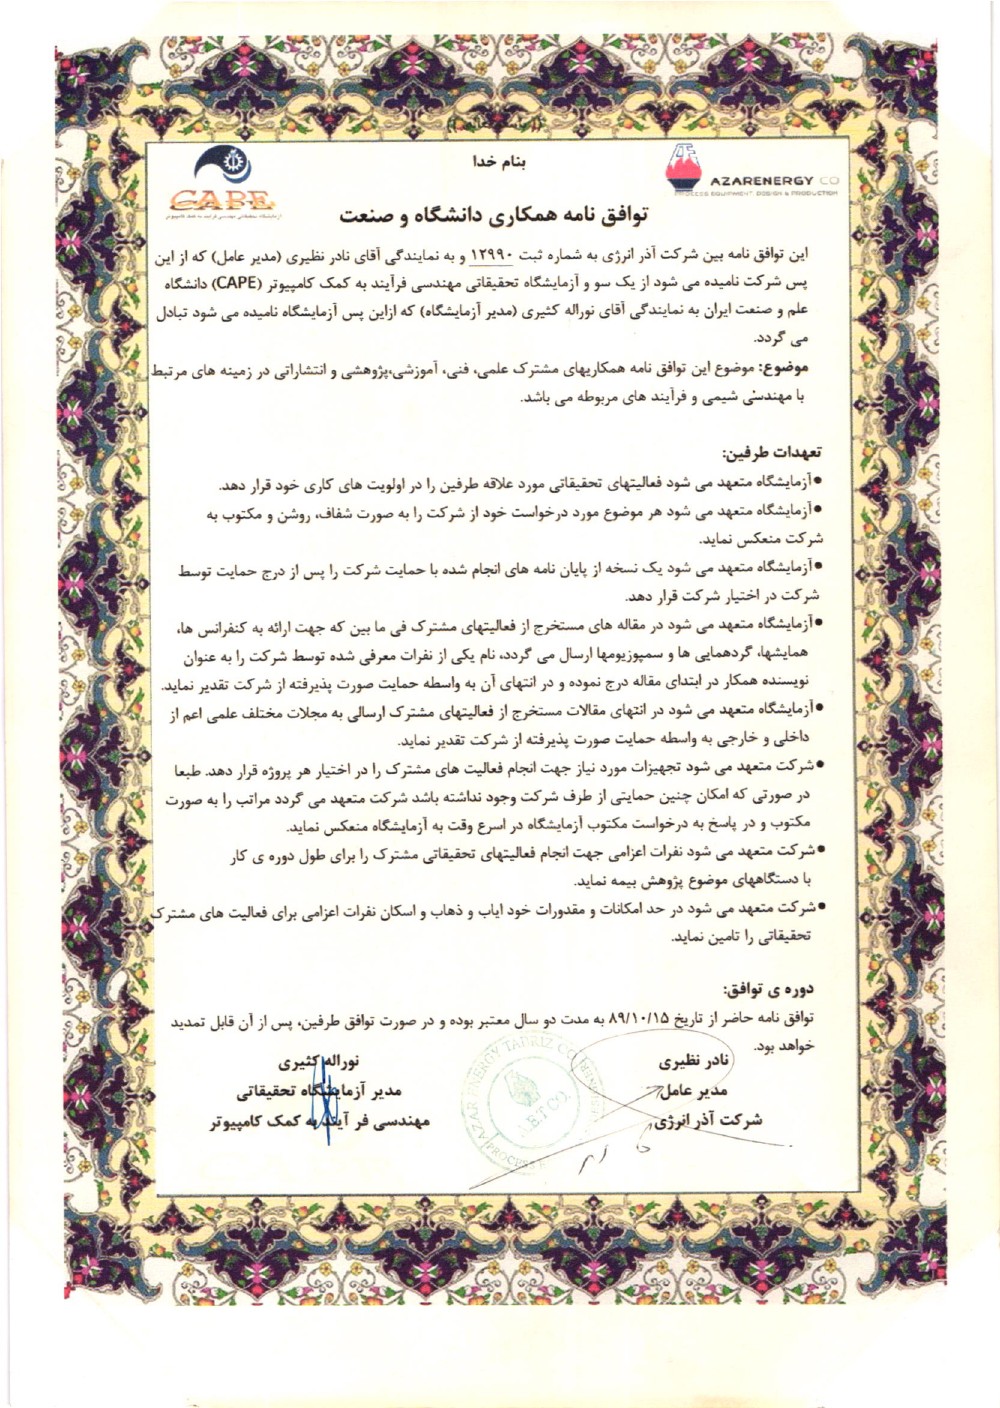 بنام خدا
CAPE
AZARENERGY CO
PROCESS EQUIPMENT DESIGN & PRODUCTION
توافق نامه همکاری دانشگاه و صنعت
این توافق نامه بین شرکت آذر انرژی به شماره ثبت ۱۲۹۹۰ و به نمایندگی آقای نادر نظیری (مدیر عامل) که از این
پس شرکت نامیده می شود از یک سو و آزمایشگاه تحقیقاتی مهندسی فرآیند به کمک کامپیوتر (CAPE) دانشگاه
علم و صنعت ایران به نمایندگی آقای نوراله کثیری (مدیر آزمایشگاه) که ازاین پس آزمایشگاه نامیده می شود تبادل
می گردد.
موضوع: موضوع این توافق نامه همکاریهای مشترک علمی، فنی، آموزشی،پژوهشی و انتشاراتی در زمینه های مرتبط
با مهندسی شیمی و فرآیند های مربوطه می باشد.
تعهدات طرفین:
●آزمایشگاه متعهد می شود فعالیتهای تحقیقاتی مورد علاقه طرفین را در اولویت های کاری خود قرار دهد.
●آزمایشگاه متعهد می شود هر موضوع مورد درخواست خود از شرکت را به صورت شفاف، روشن و مکتوب به
شرکت منعکس نماید.
●آزمایشگاه متعهد می شود یک نسخه از پایان نامه های انجام شده با حمایت شرکت را پس از درج حمایت توسط
شرکت در اختیار شرکت قرار دهد.
●آزمایشگاه متعهد می شود در مقاله های مستخرج از فعالیتهای مشترک فی ما بین که جهت ارائه به کنفرانس ها،
همایشها، گردهمایی ها و سمپوزیومها ارسال می گردد، نام یکی از نفرات معرفی شده توسط شرکت را به عنوان
نویسنده همکار در ابتدای مقاله درج نموده و در انتهای آن به واسطه حمایت صورت پذیرفته از شرکت تقدیر نماید.
●آزمایشگاه متعهد می شود در انتهای مقالات مستخرج از فعالیتهای مشترک ارسالی به مجلات مختلف علمی اعم از
داخلی و خارجی به واسطه حمایت صورت پذیرفته از شرکت تقدیر نماید.
●شرکت متعهد می شود تجهیزات مورد نیاز جهت انجام فعالیت های مشترک را در اختیار هر پروژه قرار دهد. طبعا
در صورتی که امکان چنین حمایتی از طرف شرکت وجود نداشته باشد شرکت متعهد می گردد مراتب را به صورت
مکتوب و در پاسخ به درخواست مکتوب آزمایشگاه در اسرع وقت به آزمایشگاه منعکس نماید.
●شرکت متعهد می شود نفرات اعزامی جهت انجام فعالیتهای تحقیقاتی مشترک را برای طول دوره ی کار
با دستگاههای موضوع پژوهش بیمه نماید.
●شرکت متعهد می شود در حد امکانات و مقدورات خود ایاب و ذهاب و اسکان نفرات اعزامی برای فعالیت های مشترک
تحقیقاتی را تامین نماید.
دوره ی توافق:
توافق نامه حاضر از تاریخ ۸۹/۱۰/۱۵ به مدت دو سال معتبر بوده و در صورت توافق طرفین، پس از آن قابل تمدید
خواهد بود.
نادر نظیری
مدیر عامل
شرکت آذر انرژی
نوراله کثیری
مدیر آزمایشگاه تحقیقاتی
مهندسی فر آیند به کمک کامپیوتر
AZAR ENERGY TABRIZ CO.